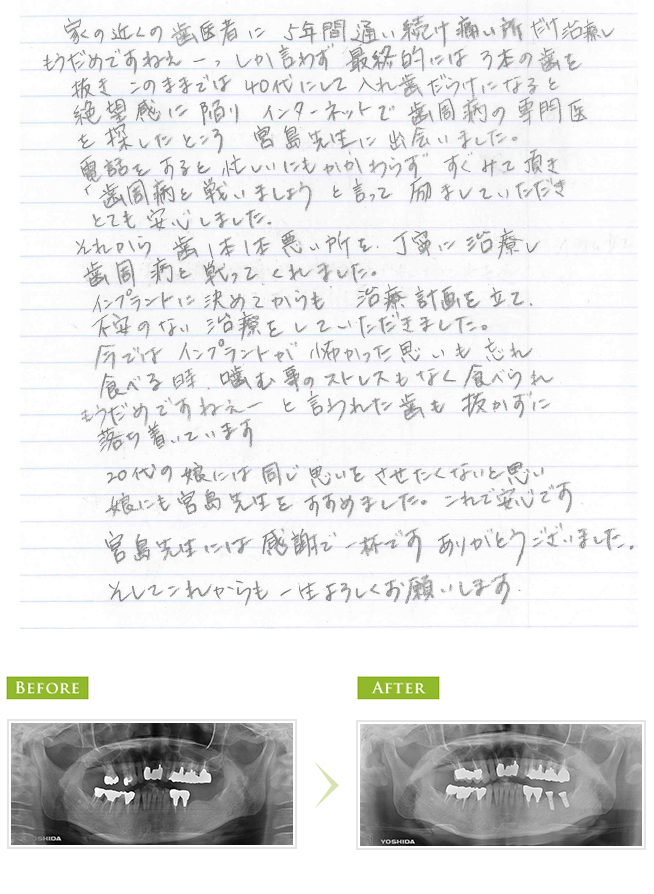 家の近くの歯医者に 5年間通い続け痛い所だけ治療し
もうだめですねえーっしか言わず 最終的には3本の歯を
抜き このままでは40代にして入れ歯だらけになると
絶望感に陥り インターネットで歯周病の専門医
を探したところ 宮島先生に出会いました。
電話をすると忙しいにもかかわらず すぐみて頂き
「歯周病と戦いましょう と言って励ましていただき
とても安心しました.
それから 歯1本1本悪い所を、丁寧に治療し
歯周病と戦ってくれました。
インプラントに決めてからも 治療計画を立て、
不安のない治療をしていただきました。
今ではインプラントが怖かった思いも忘れ
食べる時、噛む事のストレスもなく食べられ
もうだめですねえーと言われた歯も抜かずに
落ち着いています
20代の娘には同じ思いをさせたくないと思い
娘にも宮島先生をすすめました。これで安心です
宮島先生には感謝で一杯です ありがとうございました。
そしてこれからも一生よろしくお願いします.
BEFORE
AFTER
YOSHIDA
YOSHIDA